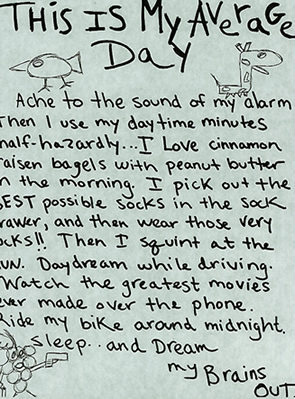 THIS IS MY AVERAGE
DAY
Ache to the sound of my alarm
Then I use my daytime minutes
half-hazardly... I Love cinnamon
raisen bagels with peanut butter
in the morning. I pick out the
BEST possible socks in the sock
drawer, and then wear those very
socks!! Then I squint at the
SUN. Daydream while driving.
Watch the greatest movies
ever made over the phone.
Ride my bike around midnight.
Sleep.. and Dream
my Brains
OUT.